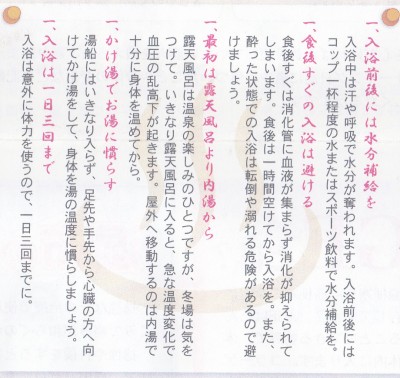 一、入浴前後には水分補給を
入浴中は汗や呼吸で水分が奪われます。入浴前後には
コップ一杯程度の水またはスポーツ飲料で水分補給を。
一、食後すぐの入浴は避ける
食後すぐは消化管に血液が集まらず消化が抑えられて
しまいます。食後は一時間空けてから入浴を。また、
酔った状態での入浴は転倒や溺れる危険があるので避
けましょう。
一、最初は露天風呂より内湯から
露天風呂は温泉の楽しみのひとつですが、冬場は気を
つけて。いきなり露天風呂に入ると、急な温度変化で
血圧の乱高下が起きます。屋外へ移動するのは内湯で
十分に身体を温めてから。
一、かけ湯でお湯に慣らす
湯船にはいきなり入らず、足先や手先から心臓の方へ向
けてかけ湯をして、身体を湯の温度に慣らしましょう。
一、入浴は一日三回まで
入浴は意外に体力を使うので、一日三回までに。